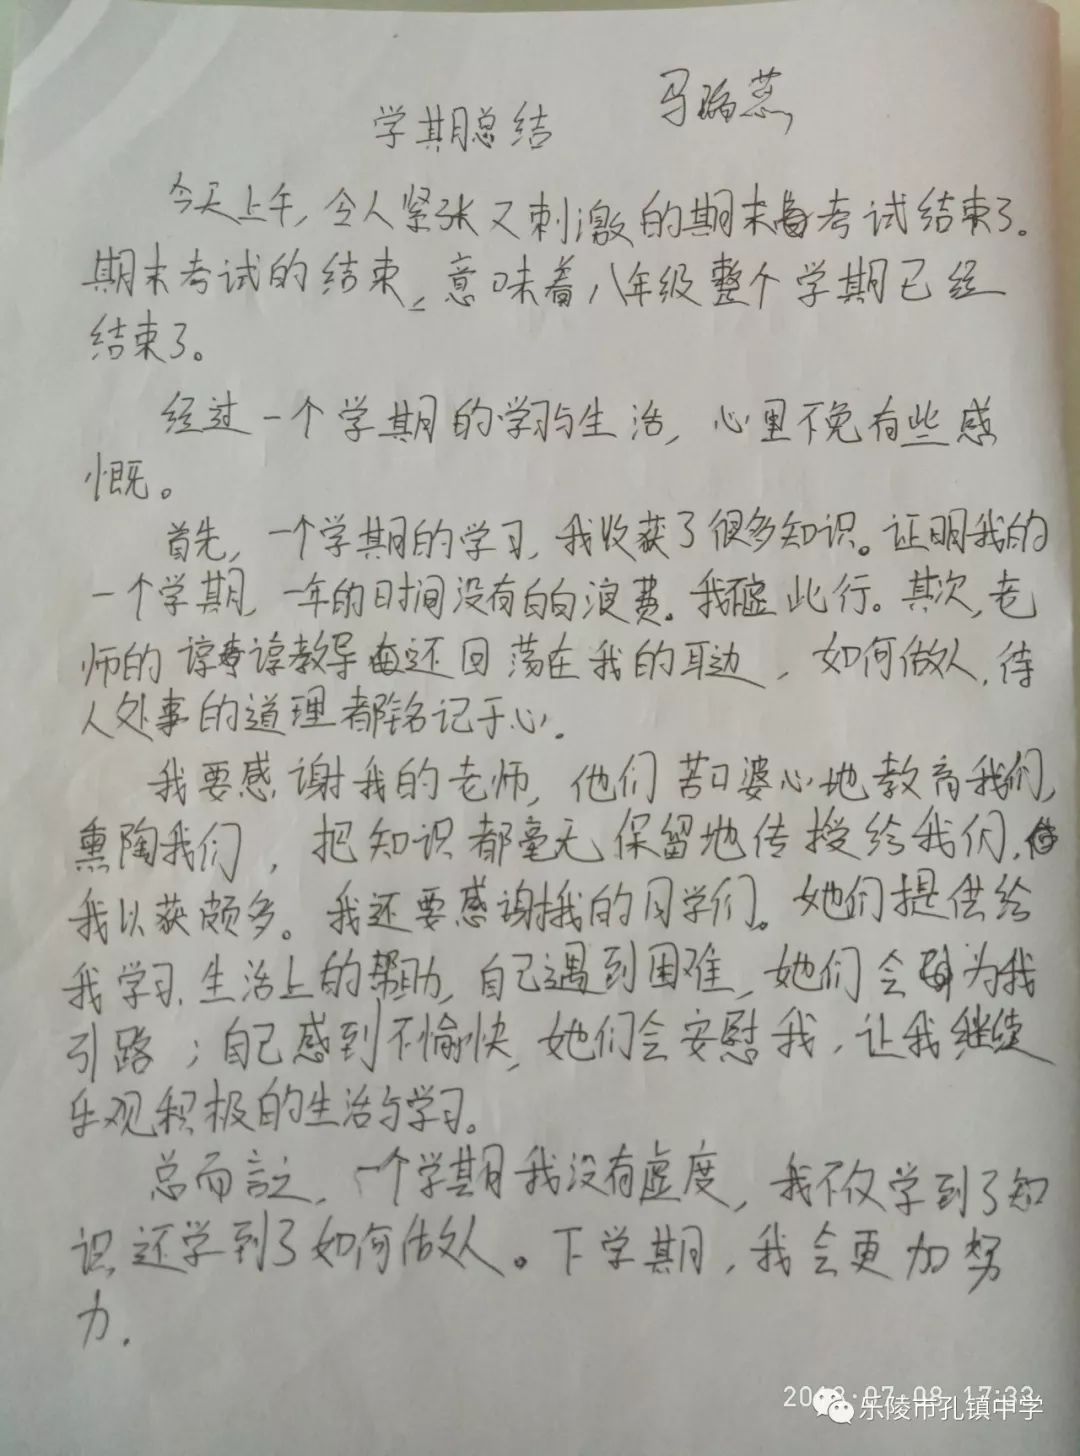 学期总结
马瑞蕊
今天上午,令人紧张又刺激的期末考试结束了。
期末考试的结束,意味着八年级整个学期已经
结束了。
经过一个学期的学习与生活,心里不免有些感
慨。
首先,一个学期的学习,我收获了很多知识。证明我的
一个学期,一年的时间没有白白浪费。我不虚此行。其次,老
师的谆谆教导还回荡在我的耳边,如何做人,待
人处事的道理都铭记于心。
我要感谢我的老师,他们苦口婆心地教育我们,
熏陶我们,把知识都毫无保留地传授给我们,使
我以获颇多。我还要感谢我的同学们。她们提供给
我学习、生活上的帮助,自己遇到困难,她们会为我
引路;自己感到不愉快,她们会安慰我,让我继续
乐观积极的生活与学习。
总而言之,一个学期我没有虚度,我不仅学到了知
识,还学到了如何做人。下学期,我会更加努
力.
2018·07·08 17:33
乐陵市孔镇中学